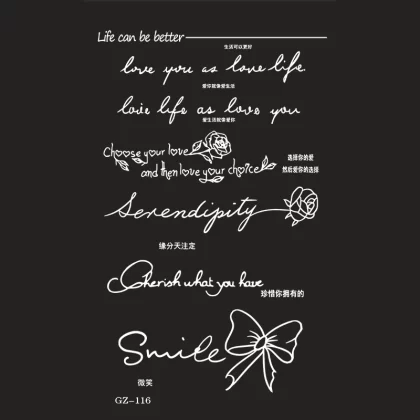 Life can be better
生活可以更好
love you as love life.
爱你就像爱生活
love life as love you
爱生活就像爱你
Choose your love
and then love your choice
选择你的爱
然后爱你的选择
Serendipity
缘分天注定
Cherish what you have
珍惜你拥有的
Smile
微笑
GZ-116